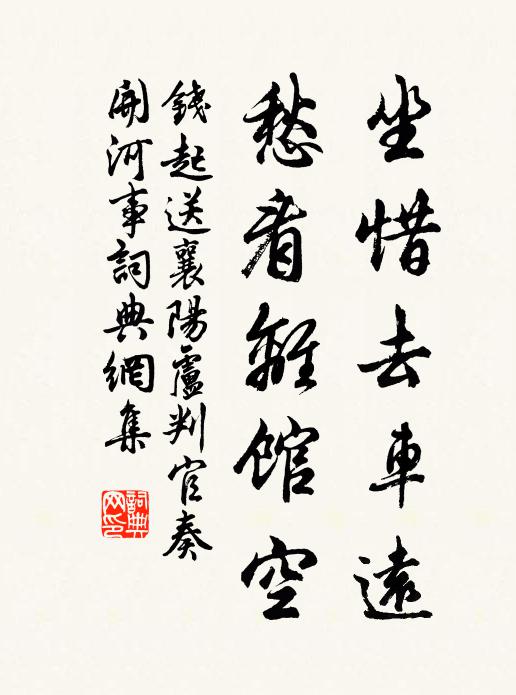 坐惜去車遠
愁看離館空
錢起送襄陽盧判官奏
開河事詞典網集
詞典
网印